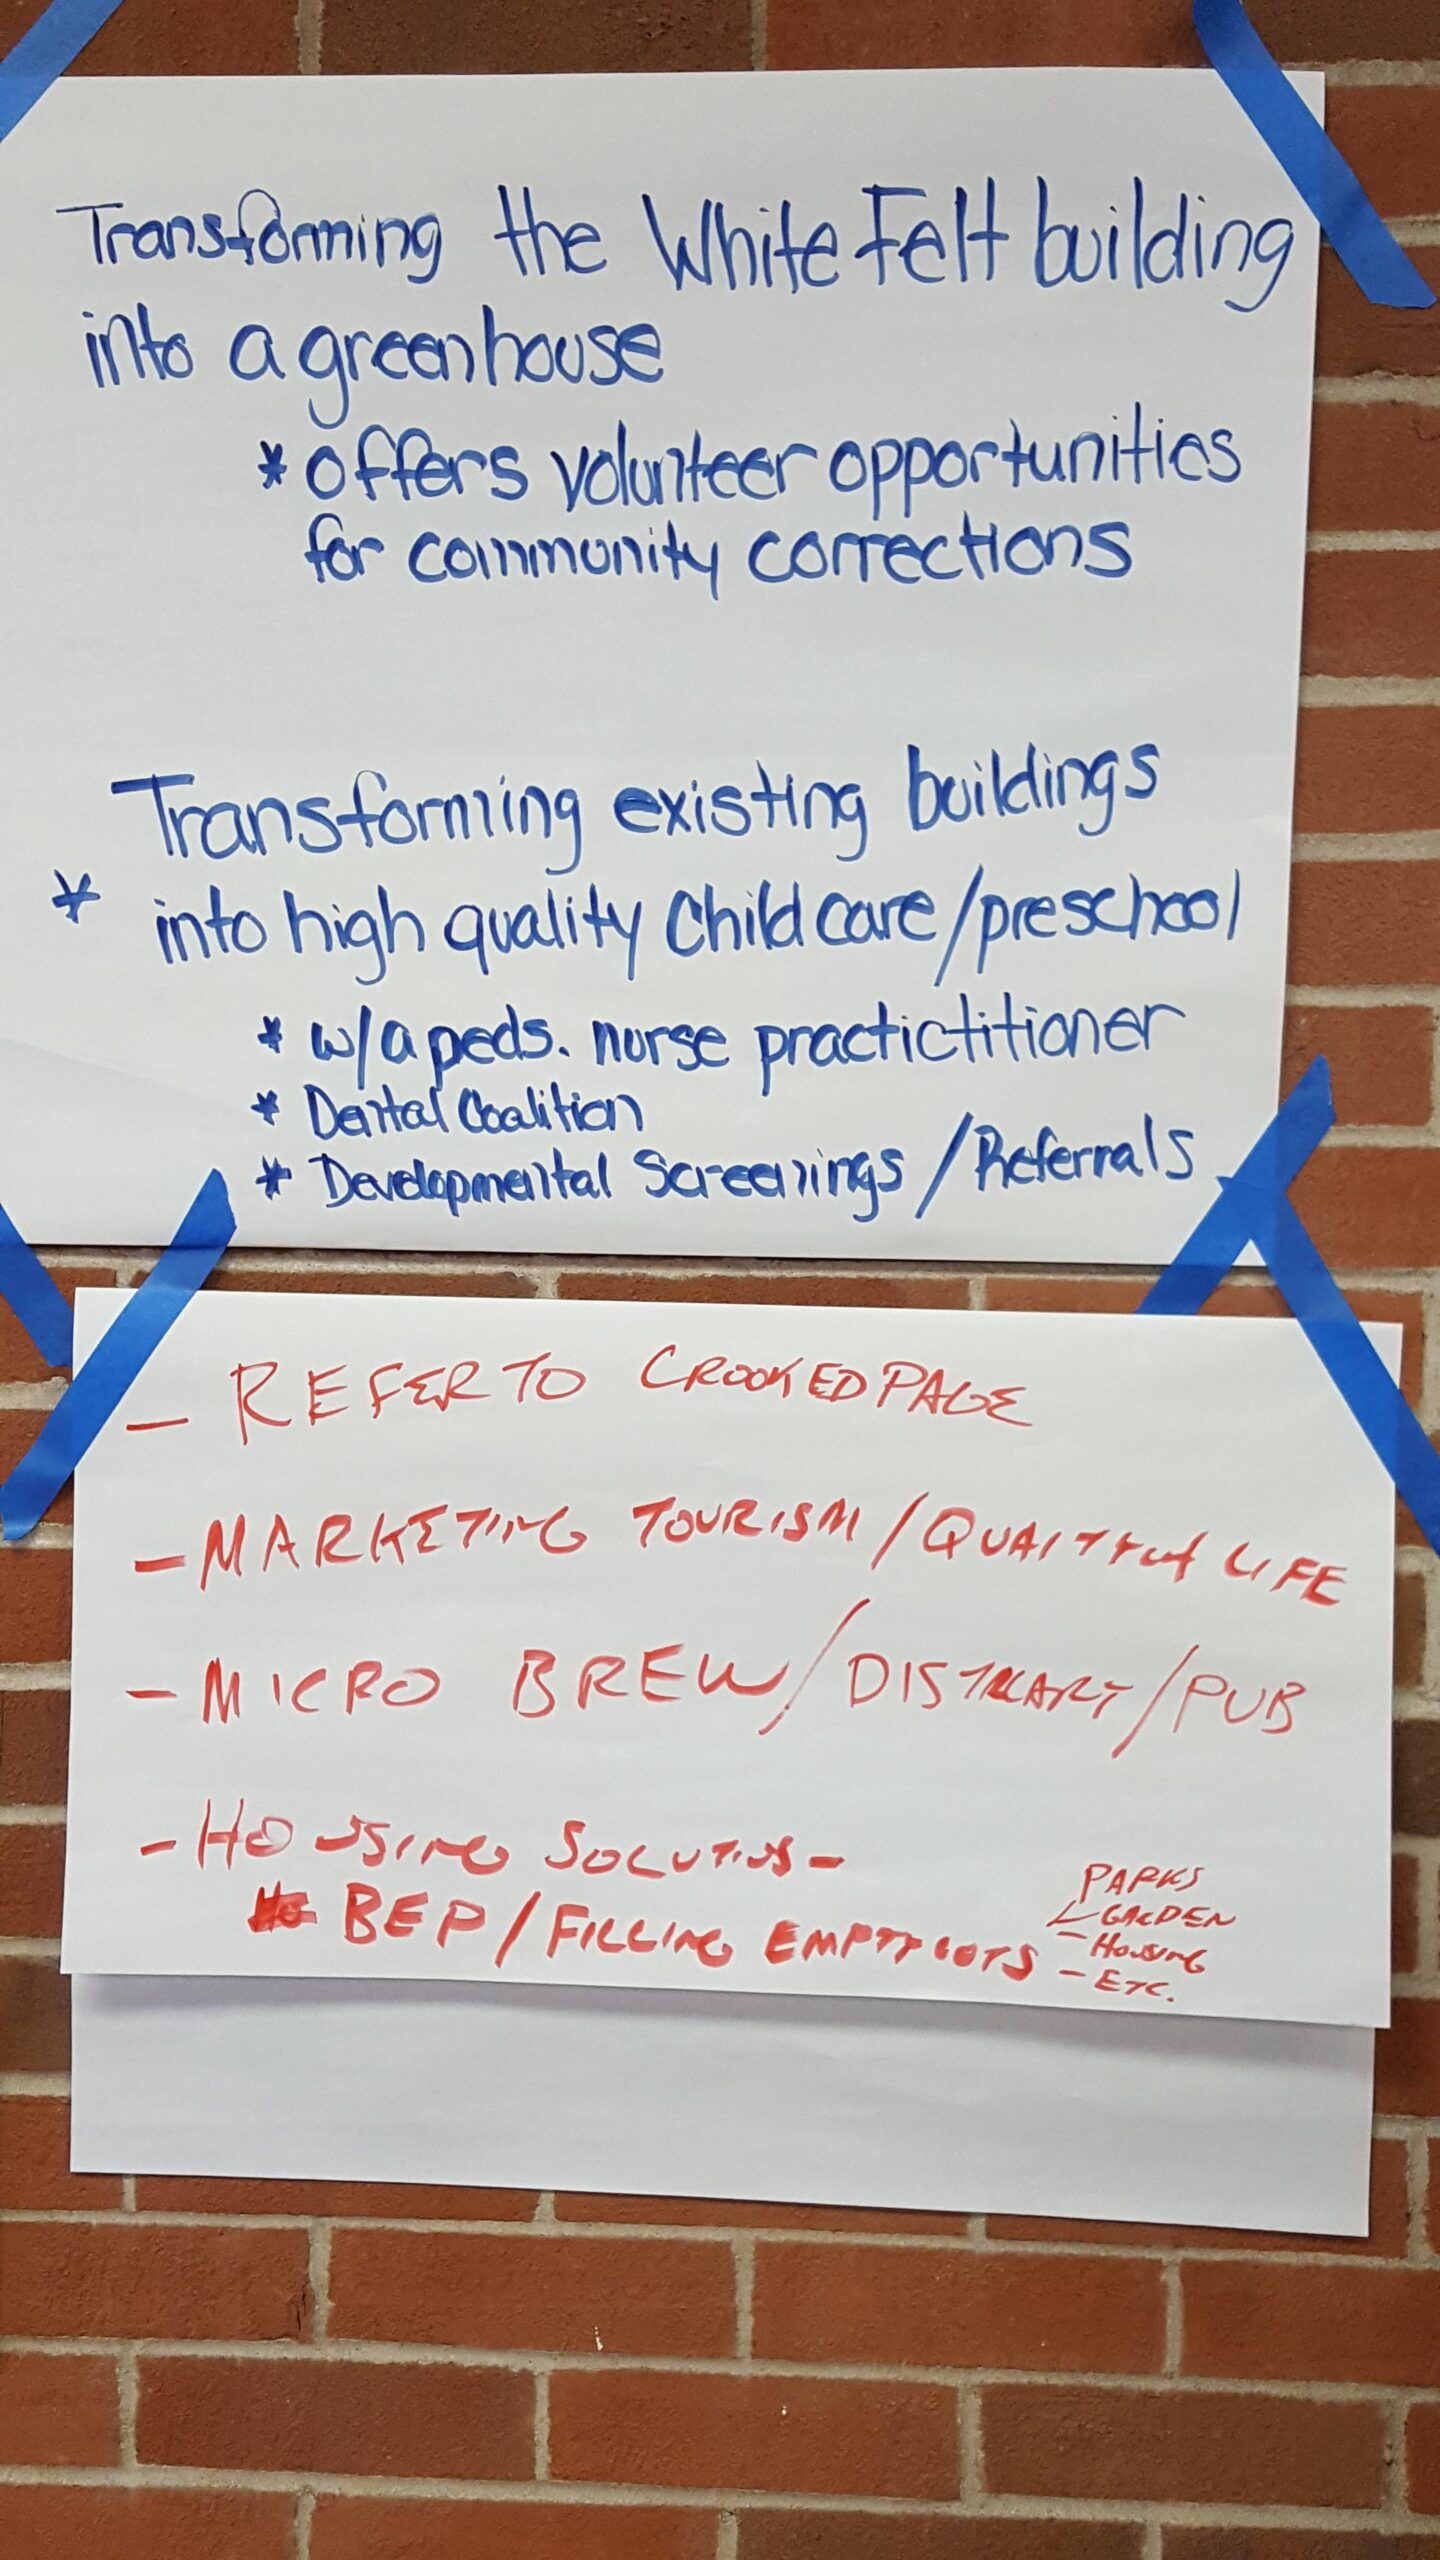 Transforming the White Felt building
into a greenhouse
* offers volunteer opportunities
for community corrections
Transforming existing buildings
* into high quality Child care/preschool
* w/a peds. nurse practictitioner
* Dental Coalition
* Developmental Screenings / Referrals
- REFER TO CROOKED PAGE
- MARKETING TOURISM / QUALITY OF LIFE
- MICRO BREW / / PUB
- HOUSING SOLUTIONS -
BEP / FILLING EMPTY LOTS
PARKS
- GARDEN
- HOUSING
- ETC.